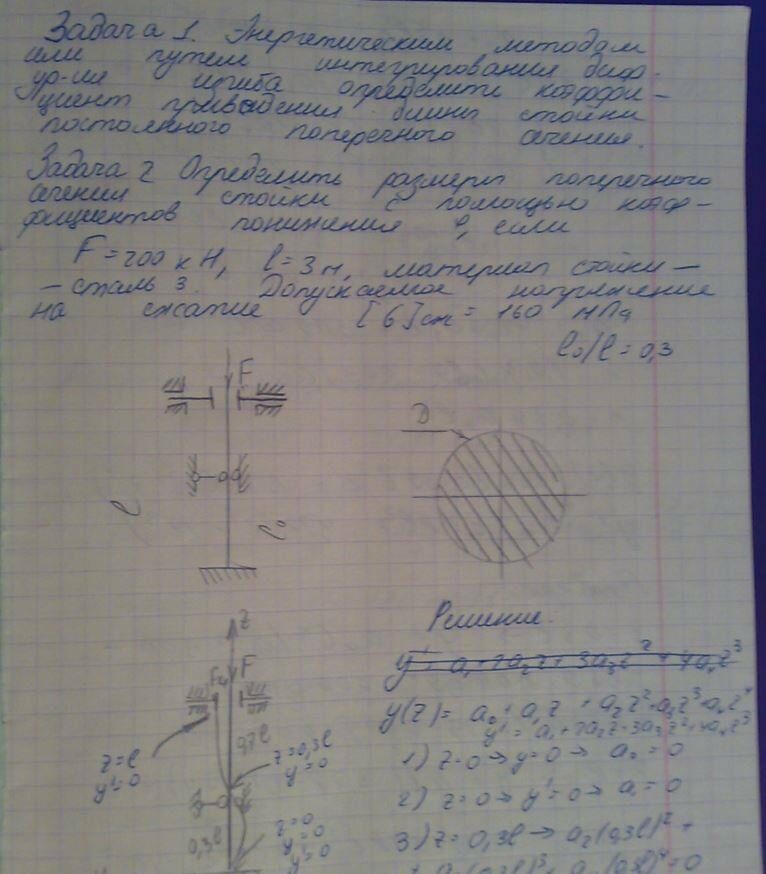 Задача 1. Энергетическим методом
или путем интегрирования диф.
ур-ия изгиба определить коэффи-
циент приведения длины стойки
постоянного поперечного сечения.
Задача 2 Определить размеры поперечного
сечения стойки с помощью коэф-
фициентов понижения φ, если
F = 200 кН, l = 3 м, материал стойки —
— сталь 3. Допускаемое напряжение
на сжатие [б]сж = 160 МПа
l₀/l = 0,3
F
D
l
l₀
z
Решение.
F
y' = a₁ + 2a₂z + 3a₃z² + 4a₄z³
y(z) = a₀ + a₁z + a₂z² + a₃z³ + a₄z⁴
y' = a₁ + 2a₂z + 3a₃z² + 4a₄z³
0,7l
z=l
y'=0
z=0,3l
y=0
1) z=0 → y=0 → a₀ = 0
2) z=0 → y'=0 → a₁ = 0
0,3l
z=0
y=0
y'=0
3) z = 0,3l → a₂(0,3l)² +
+ a₃(0,3l)³ + a₄(0,3l)⁴ = 0